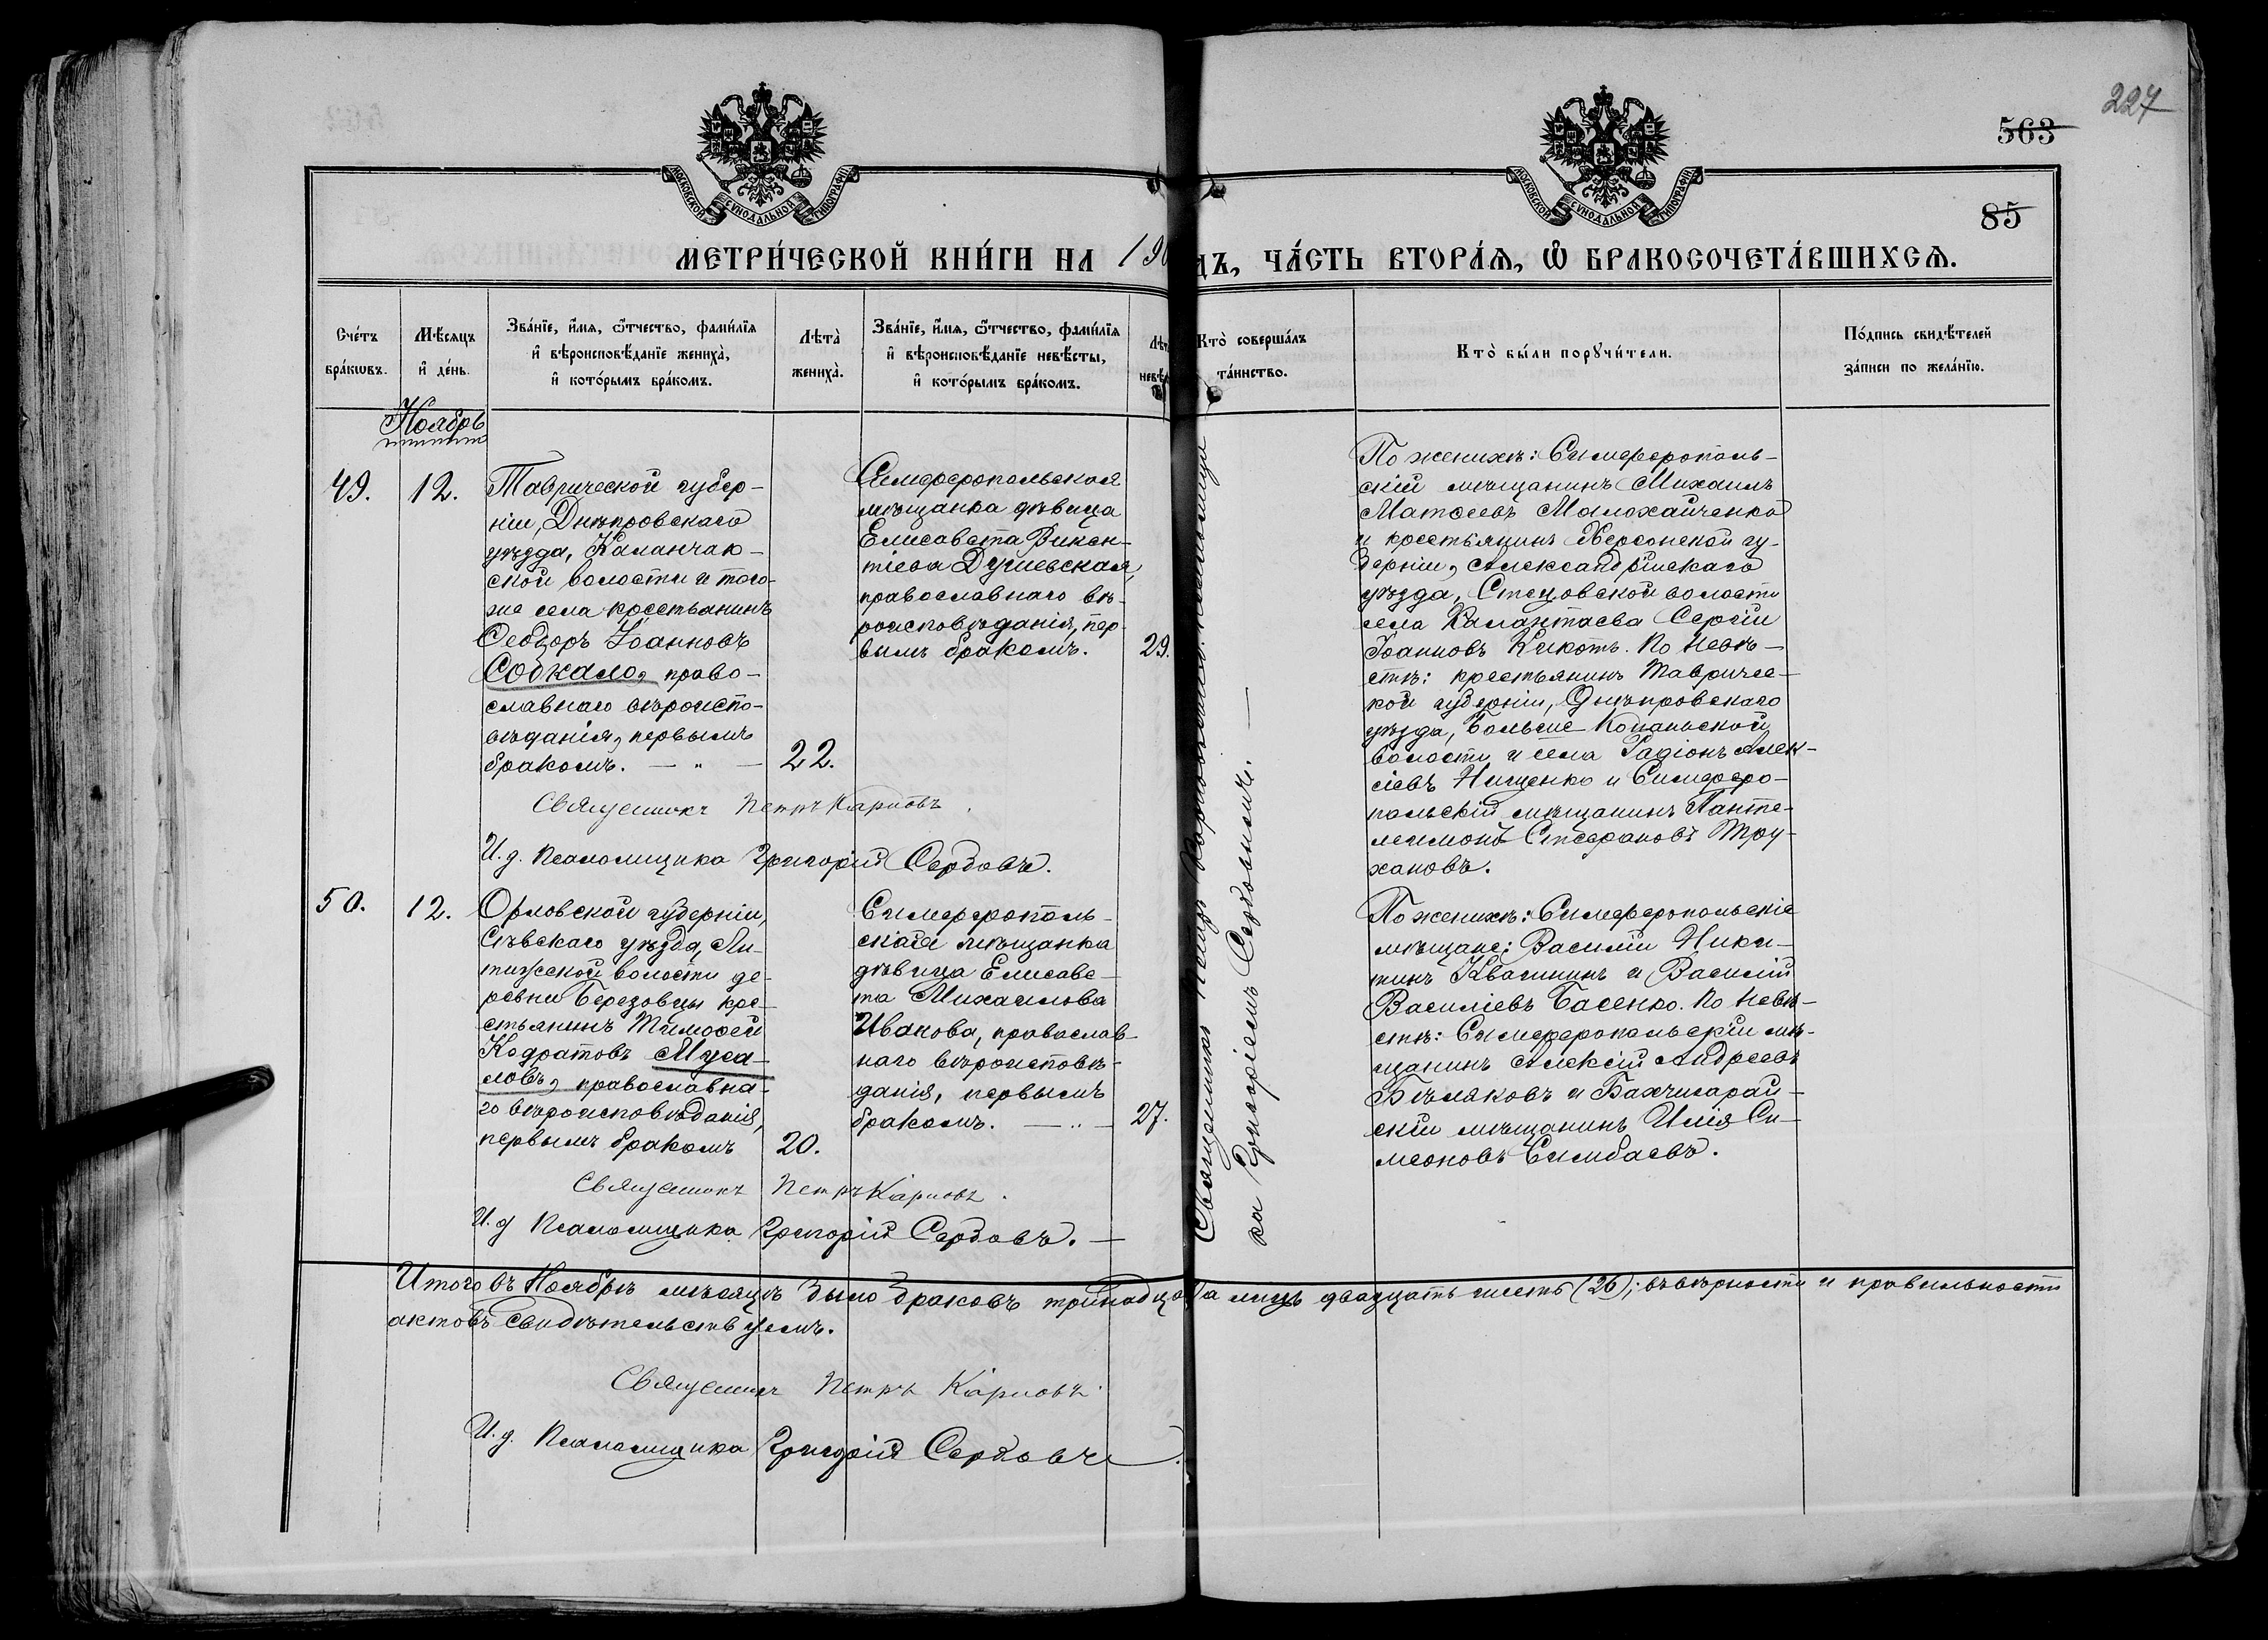 227
563
85
МОСКОВСКОЙ СѴНОДАЛЬНОЙ ТИПОГРАФІИ
МОСКОВСКОЙ СѴНОДАЛЬНОЙ ТИПОГРАФІИ
МЕТРИ́ЧЕСКОЙ КНИ́ГИ НА 190
ДЪ, ЧА́СТЬ ВТОРА́Ѧ, Ѽ БРАКОСОЧЕТА́ВШИХСѦ.
Сче́тъ
бра́кѡвъ.
Мѣ́сѧцъ
и҆ де́нь.
Зва́нїе, и҆́мѧ, ѻ҆́тчество, фами́лїѧ
и҆ вѣроисповѣ́данїе жениха̀,
и҆ кото́рымъ бра́комъ.
Лѣта̀
жениха̀.
Зва́нїе, и҆́мѧ, ѻ҆́тчество, фами́лїѧ
и҆ вѣроисповѣ́данїе невѣ́сты,
и҆ кото́рымъ бра́комъ.
Кто̀ соверша́лъ
та́инство.
Кто̀ бы́ли порꙋчи́тели.
По́дпись свидѣ́телей
за́писи по жела́нїю.
Ноябрь
49.
12.
Таврической губер-
ніи, Днѣпровскаго
уѣзда, Каланчак-
ской волости и того-
же села крестьянинъ
Ѳеодоръ Іоанновъ
Собкало, право-
славнаго вѣроиспо-
вѣданія, первымъ
бракомъ. — „ —
22.
Симферопольская
мѣщанка дѣвица
Елисавета Викен-
тіева
православнаго вѣ-
роисповѣданія, пер-
вымъ бракомъ.
29.
По женихѣ: Симферополь-
скій мѣщанинъ Михаилъ
Матѳеевъ Малохайченко
и крестьянинъ Херсонской гу-
берніи, Александрійскаго
уѣзда, Стецовской волости
села Калантаева Сергій
Іоанновъ Кикоть. По невѣ-
стѣ: крестьянинъ Тавриче-
кой губерніи, Днѣпровскаго
уѣзда, Больше Копаньской
волости и села Радіонъ Алек-
сіевъ Нищенко и Симферо-
польскій мѣщанинъ Панте-
леимонъ Стефановъ Тру-
хановъ.
Священникъ Петръ Карповъ.
И. д. Псаломщика Григорій Сербовъ.
50.
12.
Орловской губерніи,
Сѣвскаго уѣзда, Ли-
тижской волости де-
ревни Березовцы кре-
стьянинъ Тимоѳей
Кодратовъ Муса-
ловъ, православна-
го вѣроисповѣданія,
первымъ бракомъ
20.
Симферополь-
ская мѣщанка
дѣвица Елисаве-
та Михаилова
Иванова, православ-
наго вѣроисповѣ-
данія, первымъ
бракомъ. — „ —
27.
По женихѣ: Симферопольскіе
мѣщане: Василій Ники-
тинъ Квагининъ и Василій
Василіевъ Басенко. По невѣ-
стѣ: Симферопольскій мѣ-
щанинъ Алексій Андреевъ
Бѣляковъ и Бахчисарай-
скій мѣщанинъ Илія Си-
меоновъ Симбаевъ.
Священникъ Петръ Карповъ.
И. д Псаломщика Григорій Сербовъ. —
Священникъ Петръ Карповъ
ка Григоріемъ Сербовымъ. —
Итого въ Ноябрѣ мѣсяцѣ было браковъ тринадца а лицъ двадцать шесть (26); въ вѣрности и правильности
актовъ свидѣтельствуемъ.
Священникъ Петръ Карповъ
И. д. Псаломщика Григорій Сербовъ.